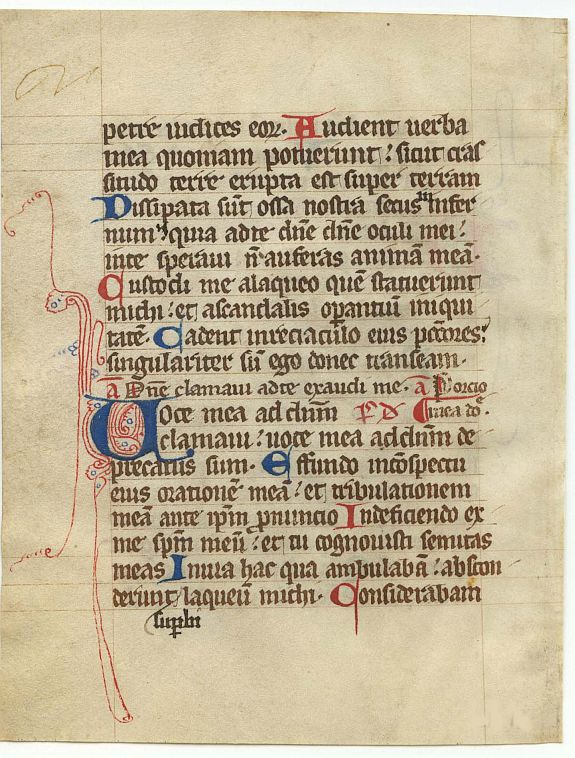 petre iudices eoꝝ. Audient uerba
mea quoniam potuerunt: sicut cras
situdo terre erupta est super terram
Dissipata sūt ossa nostra secus infer
num quia adte dn̄e dn̄e oculi mei:
inte speraui n̄ auferas animam meā.
Custodi me alaqueo quē statuerunt
michi: et ascandalis oꝑantiū iniqui
tatē. Cadent inreciaculo eius pctōres:
singulariter sū ego donec transeam.
a Dn̄e clamaui adte exaudi me. a Porcio
Uoce mea ad dn̄m p̄s d mea dō.
clamaui: uoce mea ad dn̄m de
precatus sum. Effundo incōspectu
eius orationē meā: et tribulationem
meā ante ip̄m ꝓnuncio Indeficiendo ex
me sp̄m meū: et tu cognouisti semitas
meas Inuia hac qua ambulabā: abscon
derunt laqueū michi. Considerabam
suꝑbi